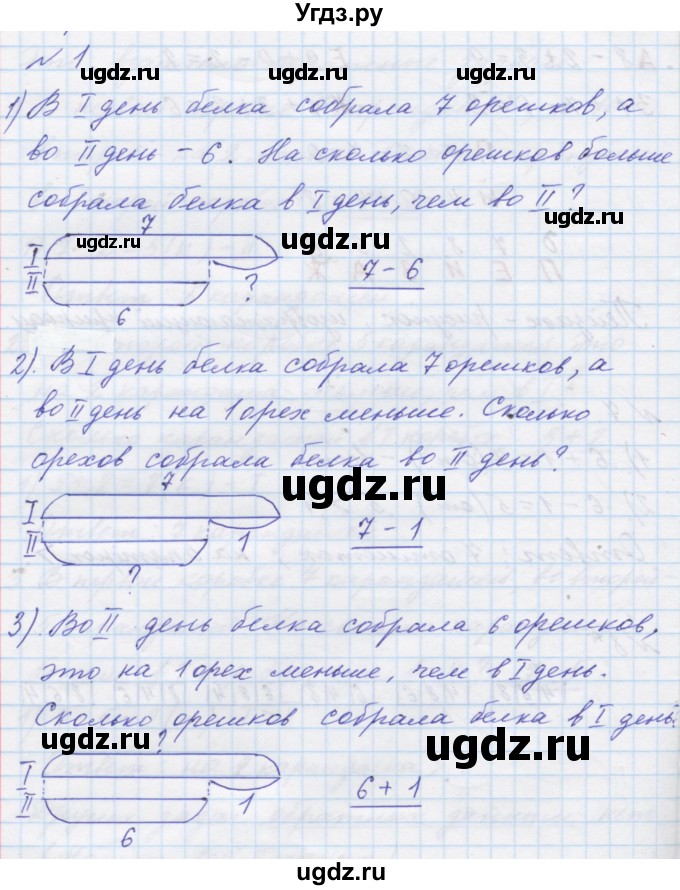 Угдз.ру
№ 1
ugdz.ru ugdz.ru
1) В I день белка собрала 7 орешков, а
во II день – 6. На сколько орешков больше
ugdz.ru
собрала белка в I день, чем во II?
7
ugdz.ru ugdz.ru
I
II ? 7 – 6
6
2). В I день белка собрала 7 орешков, а
ugdz.ru ugdz.ru
во II день на 1 орех меньше. Сколько
орехов собрала белка во II день?
7
ugdz.ru
I
II 1 7 – 1
?
3). Во II день белка собрала 6 орешков,
ugdz.ru ugdz.ru
это на 1 орех меньше, чем в I день.
Сколько орешков собрала белка в I день.
?
ugdz.ru ugdz.ru
I
II 1 6 + 1
6
ugdz.ru